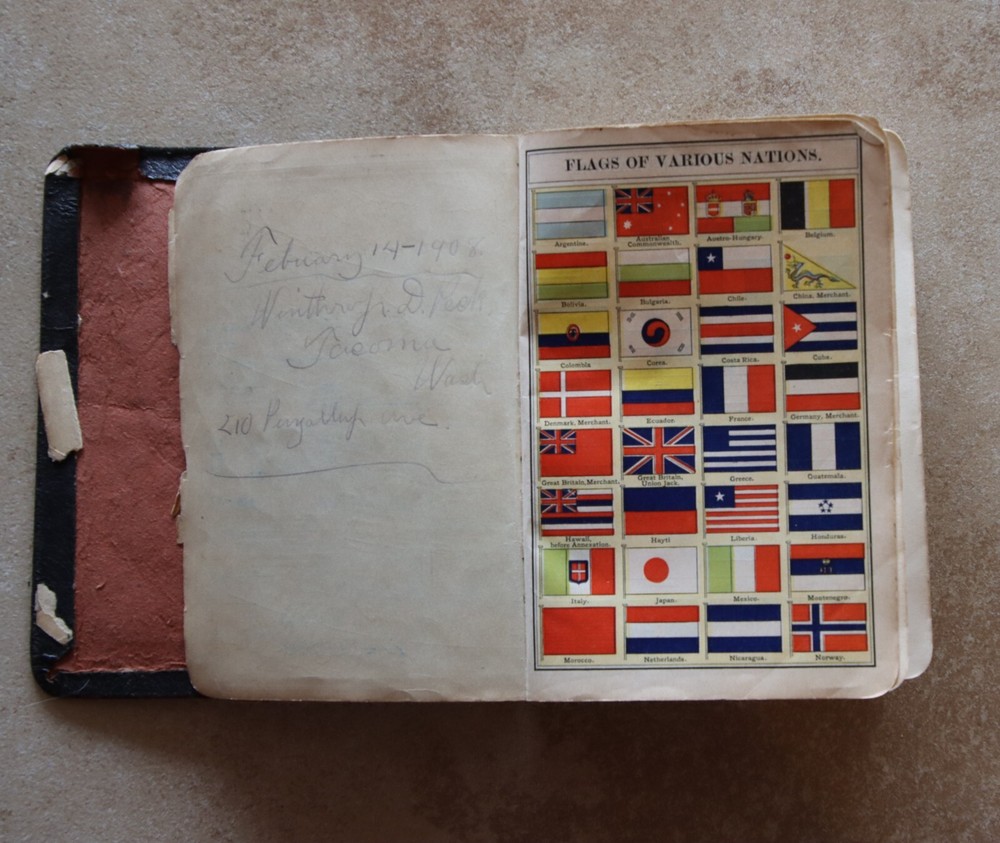 February 14-1908.
Winthrop. D.
Tacoma
Wash
210 Puyallup ave.
FLAGS OF VARIOUS NATIONS.
Argentina. Australian Commonwealth. Austro-Hungary. Belgium.
Bolivia. Bulgaria. Chile. China, Merchant.
Colombia Corea. Costa Rica. Cuba.
Denmark, Merchant. Ecuador France. Germany, Merchant.
Great Britain, Merchant. Great Britain, Union Jack. Greece. Guatemala.
Hawaii, before Annexation. Hayti Liberia. Honduras.
Italy. Japan. Mexico. Montenegro.
Morocco. Netherlands. Nicaragua. Norway.